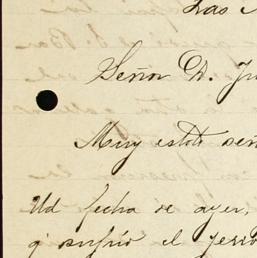 Las
Señor D. Ju
Muy estdo señ
Ud fecha de ayer,
q. sufrió el ferro